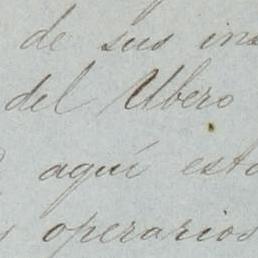 de sus ins
del Ubero
aquí esta
operarios